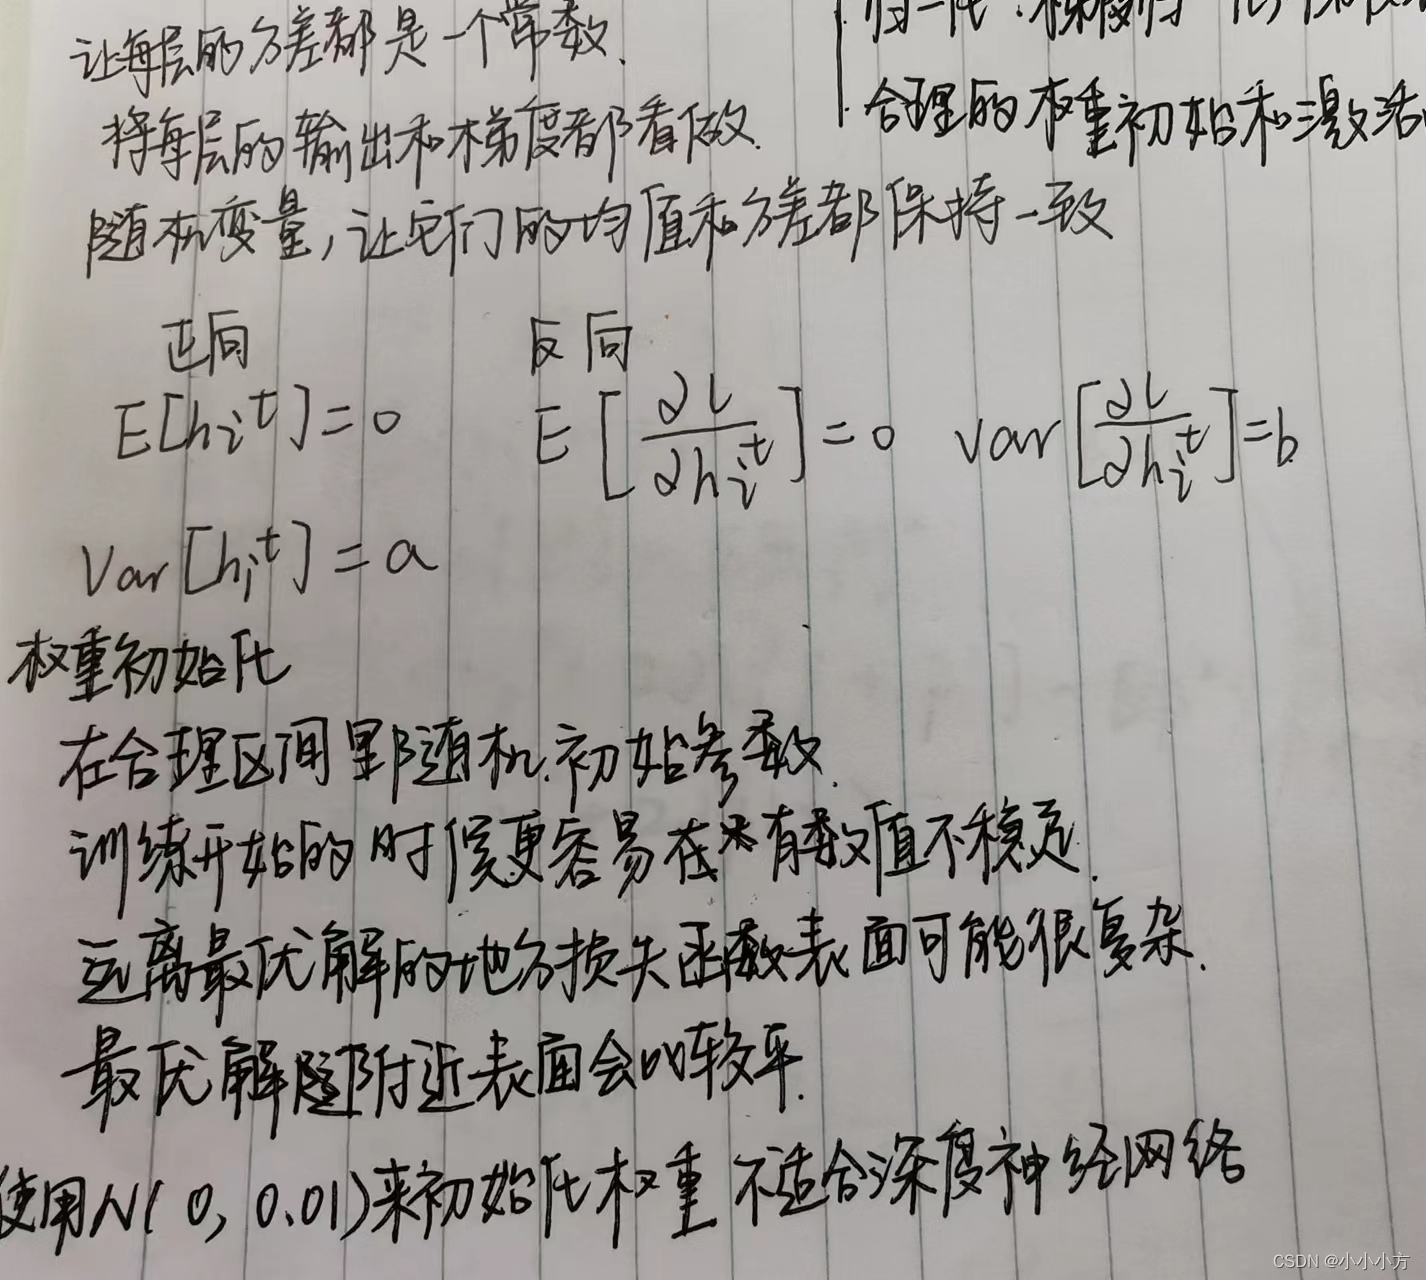 让每层的方差都是一个常数.
归一化:梯度归一化,
合理的权重初始和激活
将每层的输出和梯度都看做
随机变量,让它们的均值和方差都保持一致
正向 反向
E[hᵢᵗ]=0 E[∂l/∂hᵢᵗ]=0 Var[∂l/∂hᵢᵗ]=b
Var[hᵢᵗ]=a
权重初始化
在合理区间里随机初始参数.
训练开始的时候更容易有数值不稳定.
远离最优解的地方损失函数表面可能很复杂.
最优解附近表面会比较平.
使用N(0, 0.01)来初始化权重不适合深度神经网络
CSDN @小小小方